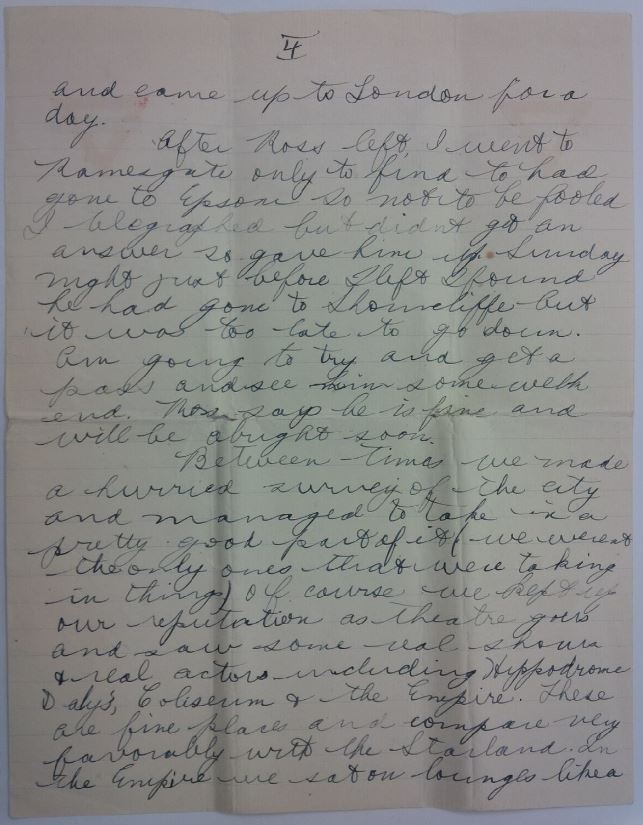 4
and came up to London for a
day.
After Ross left, I went to
Ramesgate only to find to had
gone to Epsom so not to be fooled
I telegraphed but didn't get an
answer so gave him up. Sunday
night just before I left I found
he had gone to Shorncliffe but
it was too late to go down.
Am going to try and get a
pass and see him some week
end. Ross says he is fine and
will be alright soon.
Between times we made
a hurried survey of the city
and managed to take in a
pretty good part of it (we weren't
the only ones that were taking
in things) Of course we kept up
our reputation as theatre goers
and saw some real shows
& real actors including Hippodrome
Daly's, Coliseum & the Empire. These
are fine places and compare very
favorably with the Starland. In
the Empire we sat on lounges like a